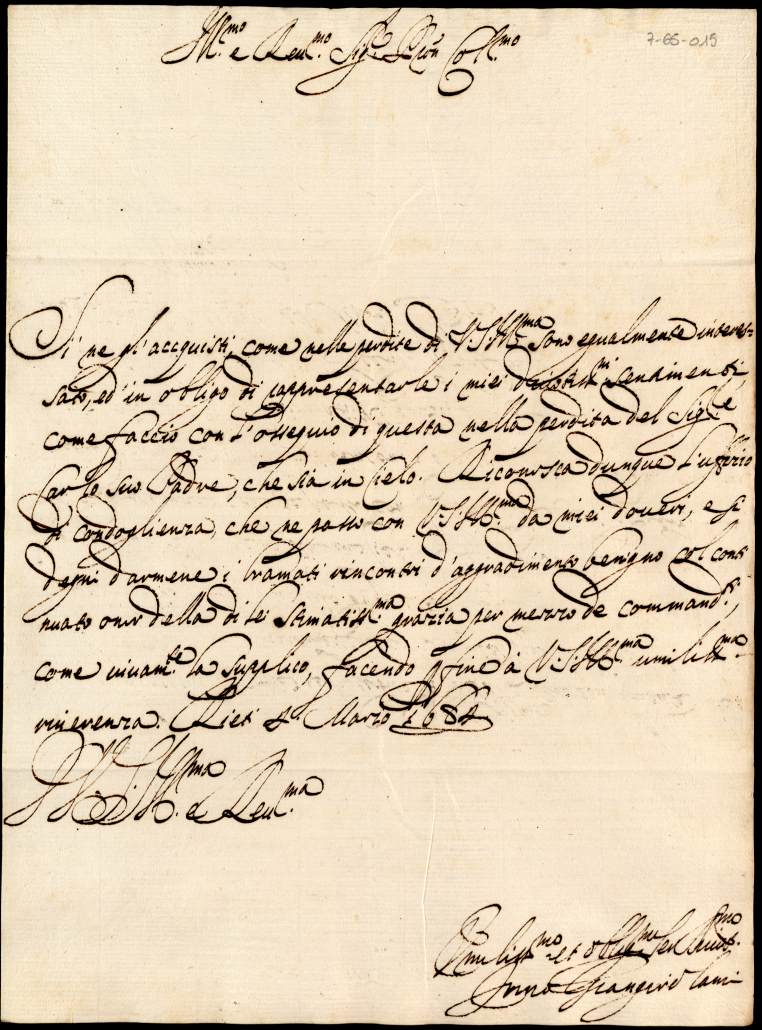 Ill.mo e Reu.mo Sig.re P.ron Coll.mo
7-66-019
Si ne gl'accquisti, come nelle perdite di V.S.Ill.ma sono egualmente interes-
sato, ed in obligo di rappresentarle i miei diuotiss.mi sentimenti,
come faccio con l'ossequio di questa nella perdita del Sig.re
Carlo suo Padre, che sia in Cielo. Riconosca dunque l'uffizio
di condoglienza, che ne passo con V.S.Ill.ma da miei doueri, e si
degni darmene i bramati rincontri d'aggradimento benigno col conti
nuato onor della di lei stimatiss.ma grazia per mezzo de command.ti,
come uiuam.te la supplico, facendo p fine à V.S.Ill.ma umiliss.ma
riuerenza. Rieti 4 Marzo 1684
D V.S.Ill.ma e Reu.ma
Umiliss.mo et oblig.mo Ser. diuot.mo